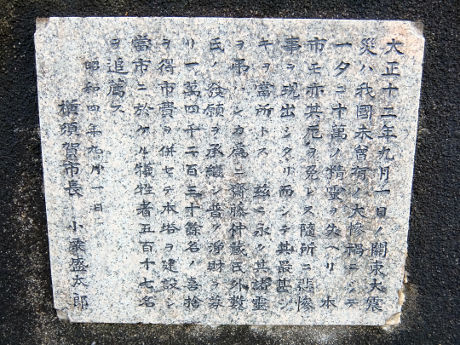 大正十二年九月一日ノ關東大震
災ハ我國未曽有ノ大惨禍ニシテ
一夕ニ十萬ノ精靈ヲ失ヘリ本
市モ亦其厄ヲ免レス随所ニ悲惨
事ヲ現出シタリ而シテ其最甚シ
キヲ當所トス茲ニ永ク其諸靈
ヲ弔ハンカ為ニ齋藤仲蔵氏外數
氏ノ發願ヲ承継シ普ク浄財ヲ募
リ一萬四千二百三十餘名ノ喜捨
ヲ得市費ヲ併セテ本塔ヲ建設シ
當市ニ於ケル犠牲者五百十七名
ヲ追薦ス
昭和四年九月一日
横須賀市長 小泉盛太郎